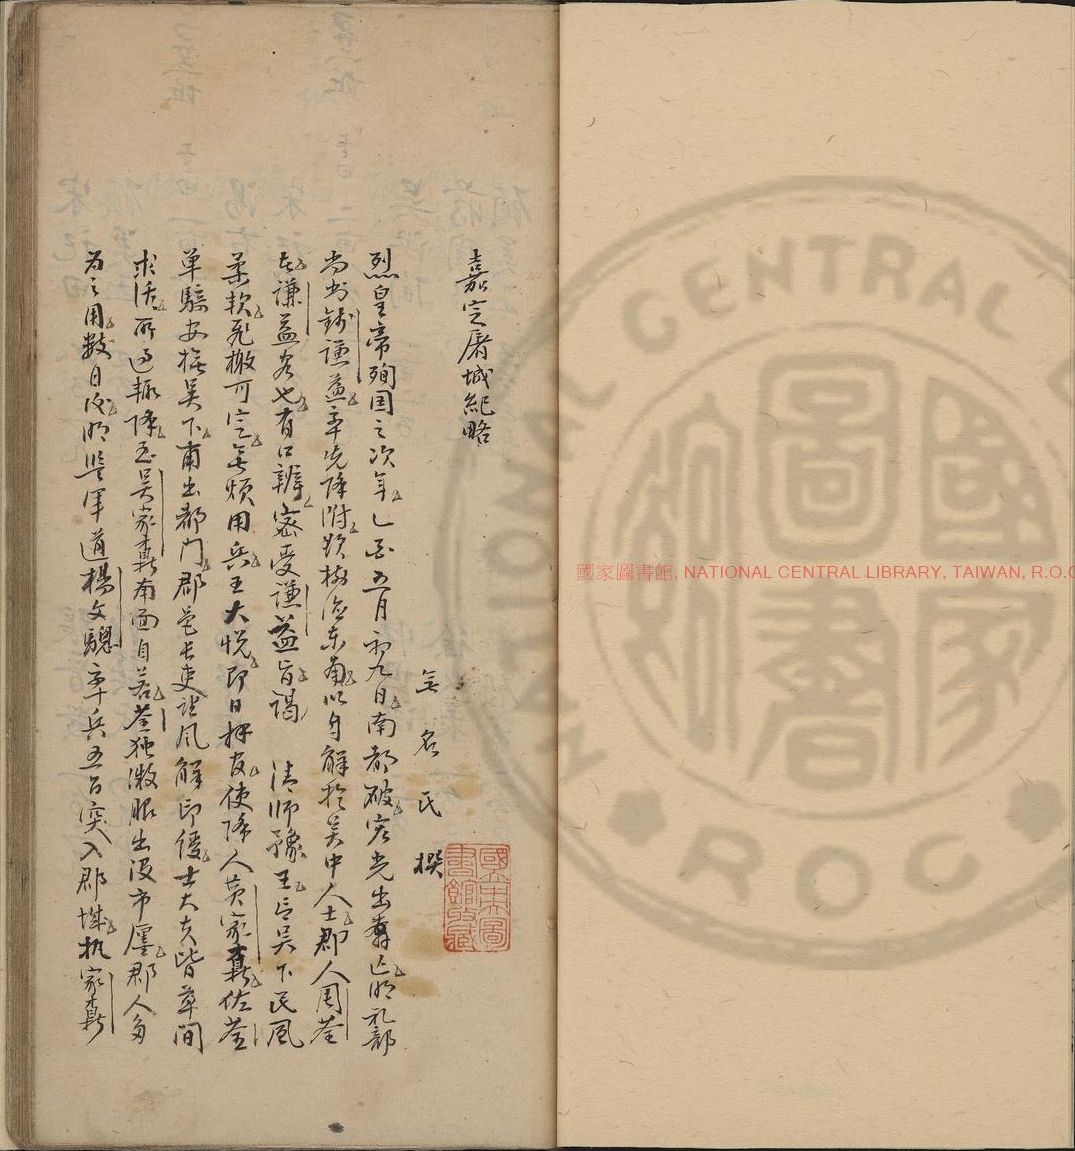 國家圖書館, NATIONAL CENTRAL LIBRARY, TAIWAN, R.O.C
嘉定屠城紀略
无名氏 撰
烈皇帝殉国之次年乙酉五月初九日南都破宏光出奔亡明礼部
尚书錢谦益率先降附欲樹德东南以自解於吴中人士郡人周荃
者谦益客也有口辨密受谦益旨谒 清师豫王言吴下民風
柔软飛檄可定無烦用兵王大悦即日拜使降人黄家鼒佐荃
单騎安撫吴下甫出郡门郡邑长吏望风解印绶士大夫皆草间
求活所過輙降至吴家鼒南面自若荃独微服出没市廛郡人多
为之用数日後明監軍道楊文驄率兵五百突入郡城执家鼒
國立中央圖書館收藏
CENTRAL
ROC
國家圖書館